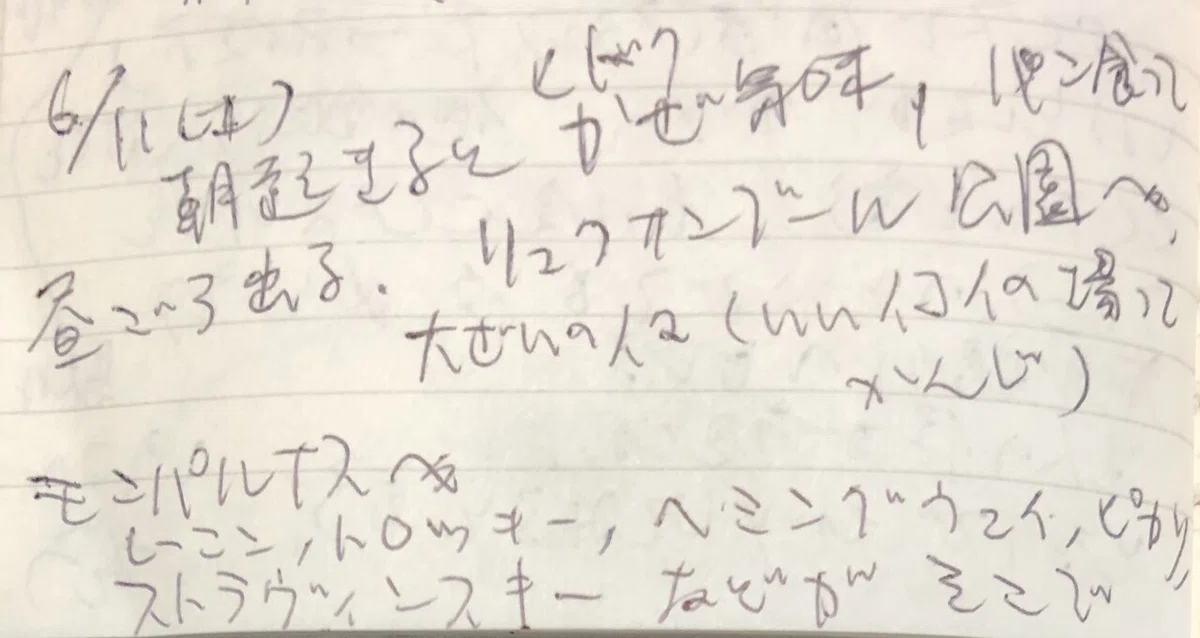 6/11(土)
朝起きると ひどく かぜ気味, 食って
昼ごろ出る. リュクサンブール公園へ,
大ぜいの人 (いい 人の場って
かんじ)
モンパルナスへ
レーニン, トロツキー, ヘミングウェイ, ピカソ,
ストラヴィンスキー などが そこで